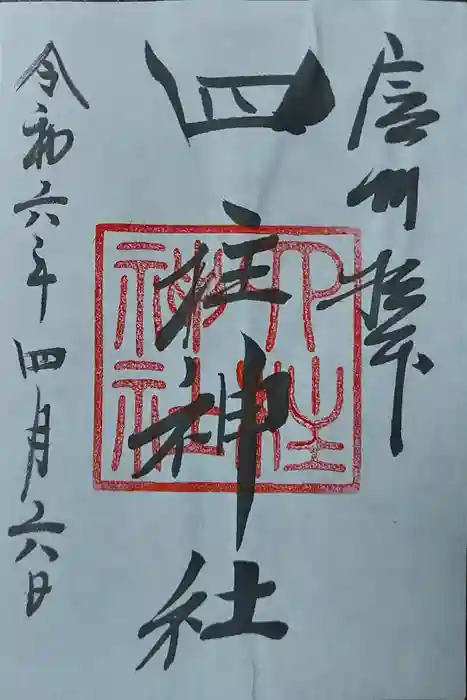 信州松本
四柱神社
令和六年四月六日
四柱神社